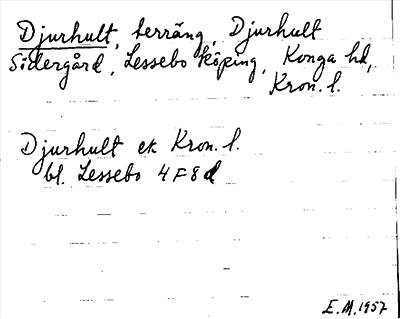 Djurhult, terräng, Djurhult
Södergård, Lessebo köping, Konga hd,
Kron. l.
Djurhult ek Kron. l.
bl. Lessebo 4F8d
E.M. 1957